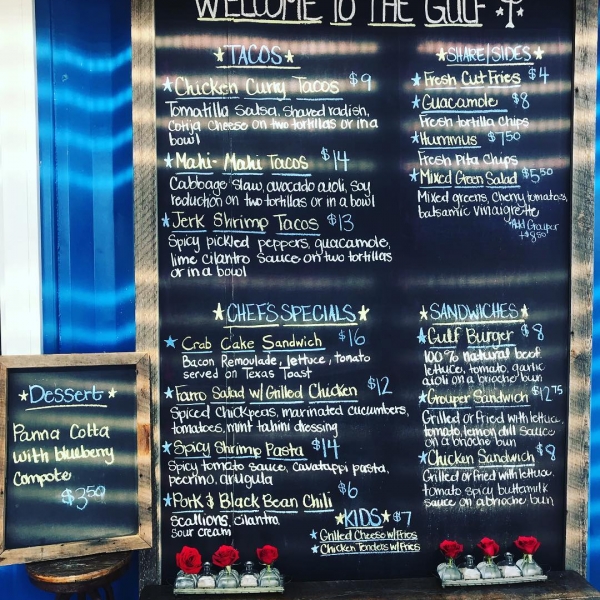 WELCOME TO THE GULF
TACOS
Chicken Curry Tacos $9
Tomatilla Salsa, Shaved radish,
Cotija Cheese on two tortillas or in a
bowl
Mahi-Mahi Tacos $14
Cabbage Slaw, avocado aioli, soy
reduction on two tortillas or in a bowl
Jerk Shrimp Tacos $13
Spicy pickled peppers, guacamole,
lime cilantro sauce on two tortillas
or in a bowl
SHARE/SIDES
Fresh Cut Fries $4
Guacamole $8
Fresh tortilla chips
Hummus $7.50
Fresh Pita Chips
Mixed Green Salad $5.50
Mixed greens, cherry tomatoes,
balsamic vinaigrette
Add Grouper
+$8.50
CHEF'S SPECIALS
Crab Cake Sandwich $16
Bacon Remoulade, lettuce, tomato
served on Texas Toast
Farro Salad w/Grilled Chicken $12
Spiced chickpeas, marinated cucumbers,
tomatoes, mint tahini dressing
Spicy Shrimp Pasta $14
Spicy tomato sauce, cavatappi pasta,
pecrino, arugula
Pork & Black Bean Chili $6
scallions, cilantro
sour cream
KIDS $7
Grilled Cheese w/Fries
Chicken Tenders w/Fries
SANDWICHES
Gulf Burger $8
100% natural beef
lettuce, tomato, garlic
aioli on a brioche bun
Grouper Sandwich $12.75
Grilled or Fried with lettuce,
tomato, lemon dill sauce
on a brioche bun
Chicken Sandwich $8
Grilled or Fried with lettuce,
tomato spicy buttermilk
sauce on a brioche bun
Dessert
Panna Cotta
with blueberry
Compote
$3.50